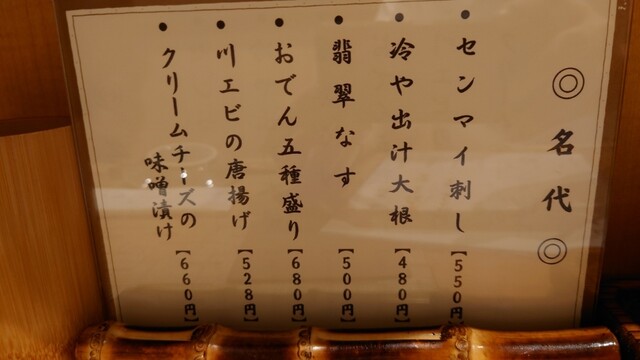 ◎名代◎
● センマイ刺し【550円】
● 冷や出汁大根【480円】
● 翡翠なす【500円】
● おでん五種盛り【680円】
● 川エビの唐揚げ【528円】
● クリームチーズの
味噌漬け【660円】